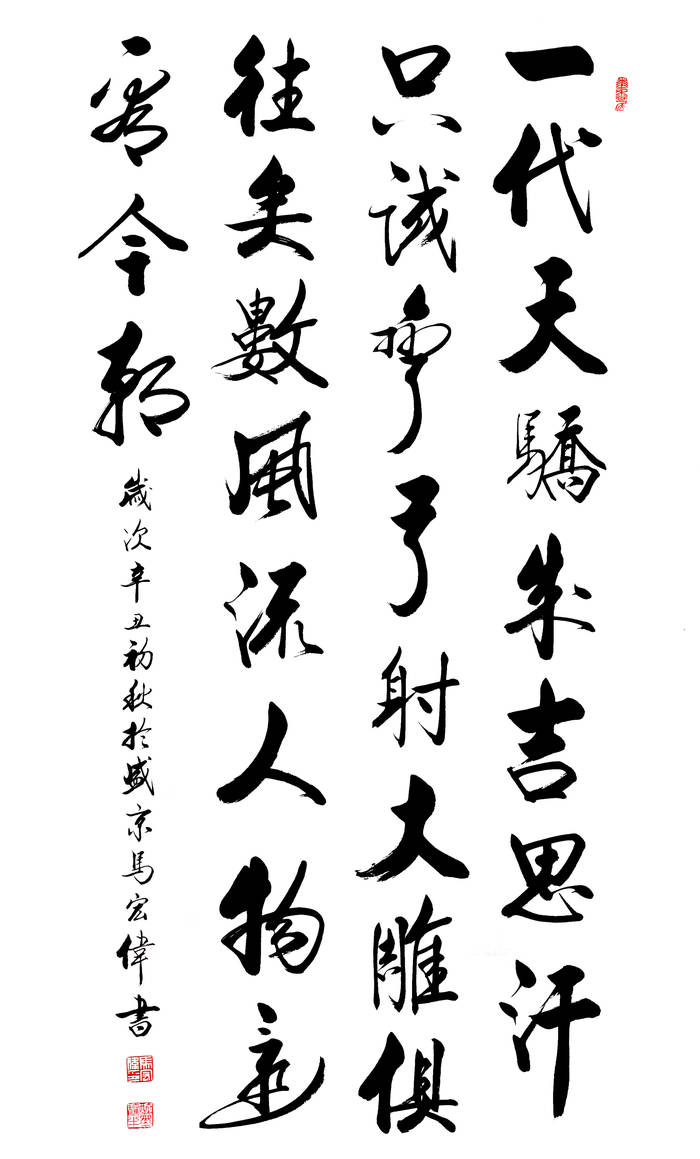 一代天驕成吉思汗
只識彎弓射大雕俱
往矣數風流人物還
看今朝
歲次辛丑初秋於盛京馬宏偉書